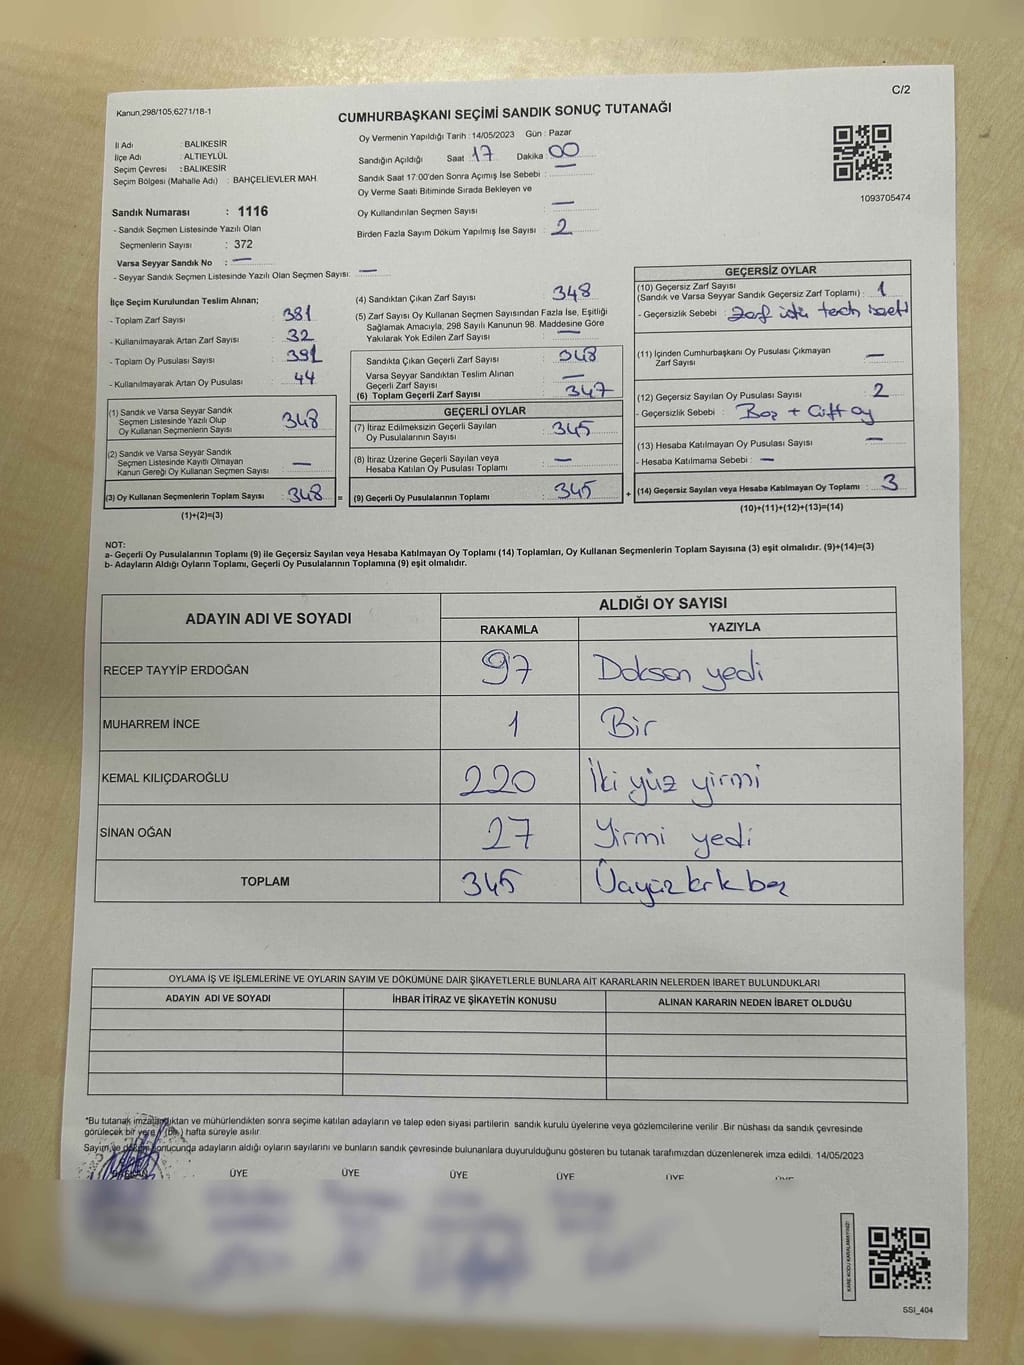 Kanun,298/105,6271/18-1
C/2
CUMHURBAŞKANI SEÇİMİ SANDIK SONUÇ TUTANAĞI
İl Adı : BALIKESİR
İlçe Adı : ALTIEYLÜL
Seçim Çevresi : BALIKESİR
Seçim Bölgesi (Mahalle Adı) : BAHÇELİEVLER MAH.
Oy Vermenin Yapıldığı Tarih : 14/05/2023 Gün : Pazar
Sandığın Açıldığı Saat 17 Dakika 00
Sandık Saat 17:00'den Sonra Açımış İse Sebebi : —
Oy Verme Saati Bitiminde Sırada Bekleyen ve
Oy Kullandırılan Seçmen Sayısı : —
Birden Fazla Sayım Döküm Yapılmış İse Sayısı : 2
1093705474
Sandık Numarası : 1116
- Sandık Seçmen Listesinde Yazılı Olan
Seçmenlerin Sayısı : 372
Varsa Seyyar Sandık No : —
- Seyyar Sandık Seçmen Listesinde Yazılı Olan Seçmen Sayısı: —
İlçe Seçim Kurulundan Teslim Alınan;
- Toplam Zarf Sayısı : 381
- Kullanılmayarak Artan Zarf Sayısı : 32
- Toplam Oy Pusulası Sayısı : 391
- Kullanılmayarak Artan Oy Pusulası : 44
(1) Sandık ve Varsa Seyyar Sandık
Seçmen Listesinde Yazılı Olup
Oy Kullanan Seçmenlerin Sayısı : 348
(2) Sandık ve Varsa Seyyar Sandık
Seçmen Listesinde Kayıtlı Olmayan
Kanun Gereği Oy Kullanan Seçmen Sayısı : —
(3) Oy Kullanan Seçmenlerin Toplam Sayısı : 348 =
(1)+(2)=(3)
(4) Sandıktan Çıkan Zarf Sayısı : 348
(5) Zarf Sayısı Oy Kullanan Seçmen Sayısından Fazla İse, Eşitliği
Sağlamak Amacıyla, 298 Sayılı Kanunun 98. Maddesine Göre
Yakılarak Yok Edilen Zarf Sayısı : —
Sandıkta Çıkan Geçerli Zarf Sayısı : 348
Varsa Seyyar Sandıktan Teslim Alınan
Geçerli Zarf Sayısı : —
(6) Toplam Geçerli Zarf Sayısı : 347
GEÇERLİ OYLAR
(7) İtiraz Edilmeksizin Geçerli Sayılan
Oy Pusulalarının Sayısı : 345
(8) İtiraz Üzerine Geçerli Sayılan veya
Hesaba Katılan Oy Pusulası Toplamı : —
(9) Geçerli Oy Pusulalarının Toplamı : 345 +
GEÇERSİZ OYLAR
(10) Geçersiz Zarf Sayısı
(Sandık ve Varsa Seyyar Sandık Geçersiz Zarf Toplamı) : 1
- Geçersizlik Sebebi : Zarf üstü
(11) İçinden Cumhurbaşkanı Oy Pusulası Çıkmayan
Zarf Sayısı : —
(12) Geçersiz Sayılan Oy Pusulası Sayısı : 2
- Geçersizlik Sebebi : Boş + Çift oy
(13) Hesaba Katılmayan Oy Pusulası Sayısı : —
- Hesaba Katılmama Sebebi : —
(14) Geçersiz Sayılan veya Hesaba Katılmayan Oy Toplamı : 3
(10)+(11)+(12)+(13)=(14)
NOT:
a- Geçerli Oy Pusulalarının Toplamı (9) ile Geçersiz Sayılan veya Hesaba Katılmayan Oy Toplamı (14) Toplamları, Oy Kullanan Seçmenlerin Toplam Sayısına (3) eşit olmalıdır. (9)+(14)=(3)
b- Adayların Aldığı Oyların Toplamı, Geçerli Oy Pusulalarının Toplamına (9) eşit olmalıdır.
ADAYIN ADI VE SOYADI ALDIĞI OY SAYISI
RAKAMLA YAZIYLA
RECEP TAYYİP ERDOĞAN 97 Doksan yedi
MUHARREM İNCE 1 Bir
KEMAL KILIÇDAROĞLU 220 İki yüz yirmi
SİNAN OĞAN 27 Yirmi yedi
TOPLAM 345 Üçyüz kırk beş
OYLAMA İŞ VE İŞLEMLERİNE VE OYLARIN SAYIM VE DÖKÜMÜNE DAİR ŞİKAYETLERLE BUNLARA AİT KARARLARIN NELERDEN İBARET BULUNDUKLARI
ADAYIN ADI VE SOYADI İHBAR İTİRAZ VE ŞİKAYETİN KONUSU ALINAN KARARIN NEDEN İBARET OLDUĞU
*Bu tutanak imzalandıktan ve mühürlendikten sonra seçime katılan adayların ve talep eden siyasi partilerin sandık kurulu üyelerine veya gözlemcilerine verilir. Bir nüshası da sandık çevresinde
görülecek bir yere (bir) hafta süreyle asılır.
Sayım ve döküm sonucunda adayların aldığı oyların sayılarını ve bunların sandık çevresinde bulunanlara duyurulduğunu gösteren bu tutanak tarafımızdan düzenlenerek imza edildi. 14/05/2023
BAŞKAN ÜYE ÜYE ÜYE ÜYE ÜYE
KARE KODU KARALAMAYINIZ!
SSI_404